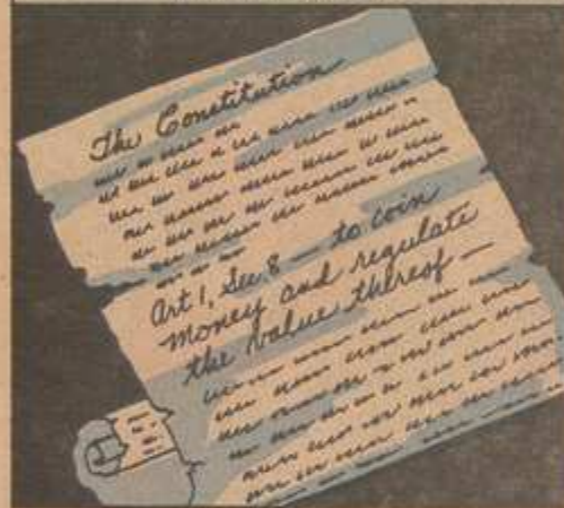 The Constitution
Art 1, Sec 8 — to coin
money and regulate
the value thereof —